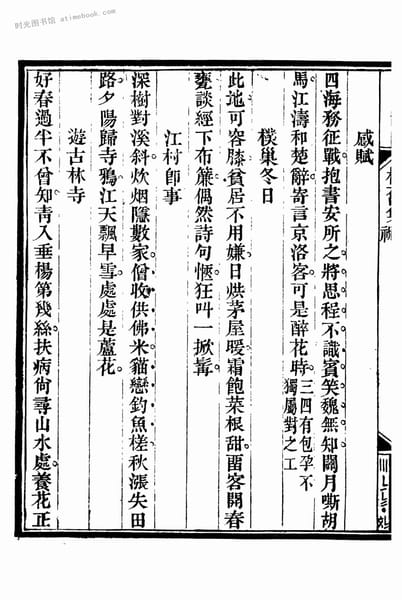 时光图书馆 atimebook.com
感賦
四海務征戰抱書安所之將思程不識賓笑魏無知闘月嘶胡
馬江濤和楚辭寄言京洛客可是醉花時三四有包孕不
獨屬對之工
樸巢冬日
此地可容膝貧居不用嫌日烘茅屋暖霜飽菜根甜畱客開春
甕談經下布簾偶然詩句愜狂叫一掀髯
江村卽事
深樹對溪斜炊烟隱數家僧收供佛米貓戀釣魚槎秋漲失田
路夕陽歸寺鴉江天飄早雪處處是蘆花
遊古林寺
好春過半不曾知靑入垂楊第幾絲扶病尙尋山水處養花正